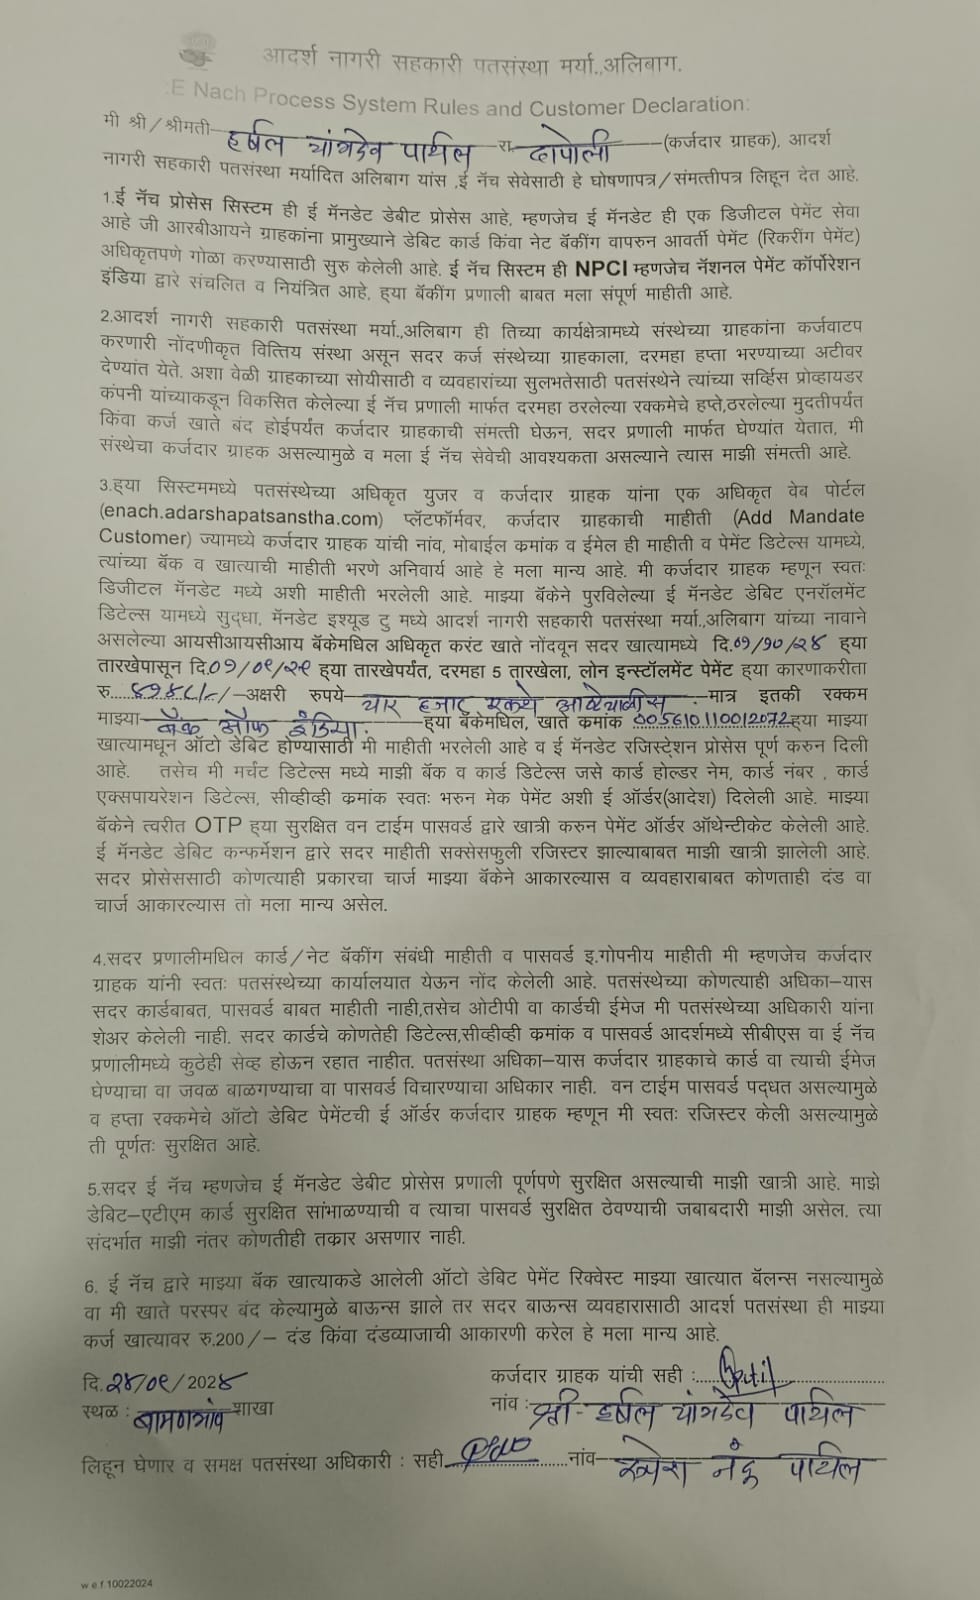 आदर्श नागरी सहकारी पतसंस्था मर्या.,अलिबाग.
E Nach Process System Rules and Customer Declaration:
मी श्री/श्रीमती हर्षल चांगदेव पाटील रा. दापोली (कर्जदार ग्राहक), आदर्श
नागरी सहकारी पतसंस्था मर्यादित अलिबाग यांस ,ई नॅच सेवेसाठी हे घोषणापत्र/संमत्तीपत्र लिहून देत आहे.
1.ई नॅच प्रोसेस सिस्टम ही ई मॅनडेट डेबीट प्रोसेस आहे, म्हणजेच ई मॅनडेट ही एक डिजीटल पेमेंट सेवा
आहे जी आरबीआयने ग्राहकांना प्रामुख्याने डेबिट कार्ड किंवा नेट बॅकींग वापरुन आवर्ती पेमेंट (रिकरींग पेमेंट)
अधिकृतपणे गोळा करण्यासाठी सुरु केलेली आहे. ई नॅच सिस्टम ही NPCI म्हणजेच नॅशनल पेमेंट कॉर्पोरेशन
इंडिया द्वारे संचलित व नियंत्रित आहे, ह्या बॅकींग प्रणाली बाबत मला संपूर्ण माहीती आहे.
2.आदर्श नागरी सहकारी पतसंस्था मर्या.,अलिबाग ही तिच्या कार्यक्षेत्रामध्ये संस्थेच्या ग्राहकांना कर्जवाटप
करणारी नोंदणीकृत वित्तिय संस्था असून सदर कर्ज संस्थेच्या ग्राहकाला, दरमहा हप्ता भरण्याच्या अटीवर
देण्यांत येते. अशा वेळी ग्राहकाच्या सोयीसाठी व व्यवहारांच्या सुलभतेसाठी पतसंस्थेने त्यांच्या सर्व्हिस प्रोव्हायडर
कंपनी यांच्याकडून विकसित केलेल्या ई नॅच प्रणाली मार्फत दरमहा ठरलेल्या रक्कमेचे हप्ते,ठरलेल्या मुदतीपर्यंत
किंवा कर्ज खाते बंद होईपर्यंत कर्जदार ग्राहकाची संमत्ती घेऊन, सदर प्रणाली मार्फत घेण्यांत येतात, मी
संस्थेचा कर्जदार ग्राहक असल्यामुळे व मला ई नॅच सेवेची आवश्यकता असल्याने त्यास माझी संमत्ती आहे.
3.ह्या सिस्टममध्ये पतसंस्थेच्या अधिकृत युजर व कर्जदार ग्राहक यांना एक अधिकृत वेब पोर्टल
(enach.adarshapatsanstha.com) प्लॅटफॉर्मवर, कर्जदार ग्राहकाची माहीती (Add Mandate
Customer) ज्यामध्ये कर्जदार ग्राहक यांची नांव, मोबाईल कमांक व ईमेल ही माहीती व पेमेंट डिटेल्स यामध्ये,
त्यांच्या बॅक व खात्याची माहीती भरणे अनिवार्य आहे हे मला मान्य आहे. मी कर्जदार ग्राहक म्हणून स्वतः
डिजीटल मॅनडेट मध्ये अशी माहीती भरलेली आहे. माझ्या बॅकेने पुरविलेल्या ई मॅनडेट डेबिट एनरॉलमेंट
डिटेल्स यामध्ये सुद्धा, मॅनडेट इश्यूड टु मध्ये आदर्श नागरी सहकारी पतसंस्था मर्या.,अलिबाग यांच्या नावाने
असलेल्या आयसीआयसीआय बॅकेमधिल अधिकृत करंट खाते नोंदवून सदर खात्यामध्ये दि.०१/१०/२४ ह्या
तारखेपासून दि.०१/०९/२९ ह्या तारखेपर्यंत, दरमहा 5 तारखेला, लोन इन्स्टॉलमेंट पेमेंट ह्या कारणाकरीता
रु. ४१४८/- /-अक्षरी रुपये चार हजार एकशे अठ्ठेचाळीस मात्र इतकी रक्कम
माझ्या बँक ऑफ इंडिया. ह्या बॅकेमधिल, खाते कमांक 005610110012072 ह्या माझ्या
खात्यामधून ऑटो डेबिट होण्यासाठी मी माहीती भरलेली आहे व ई मॅनडेट रजिस्ट्रेशन प्रोसेस पूर्ण करुन दिली
आहे. तसेच मी मर्चंट डिटेल्स मध्ये माझी बॅक व कार्ड डिटेल्स जसे कार्ड होल्डर नेम, कार्ड नंबर , कार्ड
एक्सपायरेशन डिटेल्स, सीव्हीव्ही कमांक स्वतः भरुन मेक पेमेंट अशी ई ऑर्डर(आदेश) दिलेली आहे. माझ्या
बॅकेने त्वरीत OTP ह्या सुरक्षित वन टाईम पासवर्ड द्वारे खात्री करुन पेमेंट ऑर्डर ऑथेन्टीकेट केलेली आहे.
ई मॅनडेट डेबिट कन्फर्मेशन द्वारे सदर माहीती सक्सेसफुली रजिस्टर झाल्याबाबत माझी खात्री झालेली आहे.
सदर प्रोसेससाठी कोणत्याही प्रकारचा चार्ज माझ्या बॅकेने आकारल्यास व व्यवहाराबाबत कोणताही दंड वा
चार्ज आकारल्यास तो मला मान्य असेल.
4.सदर प्रणालीमधिल कार्ड/नेट बॅकींग संबंधी माहीती व पासवर्ड इ.गोपनीय माहीती मी म्हणजेच कर्जदार
ग्राहक यांनी स्वतः पतसंस्थेच्या कार्यालयात येऊन नोंद केलेली आहे. पतसंस्थेच्या कोणत्याही अधिका–यास
सदर कार्डबाबत, पासवर्ड बाबत माहीती नाही,तसेच ओटीपी वा कार्डची ईमेज मी पतसंस्थेच्या अधिकारी यांना
शेअर केलेली नाही. सदर कार्डचे कोणतेही डिटेल्स,सीव्हीव्ही कमांक व पासवर्ड आदर्शमध्ये सीबीएस वा ई नॅच
प्रणालीमध्ये कुठेही सेव्ह होऊन रहात नाहीत. पतसंस्था अधिका–यास कर्जदार ग्राहकाचे कार्ड वा त्याची ईमेज
घेण्याचा वा जवळ बाळगण्याचा वा पासवर्ड विचारण्याचा अधिकार नाही. वन टाईम पासवर्ड पद्धत असल्यामुळे
व हप्ता रक्कमेचे ऑटो डेबिट पेमेंटची ई ऑर्डर कर्जदार ग्राहक म्हणून मी स्वतः रजिस्टर केली असल्यामुळे
ती पूर्णतः सुरक्षित आहे.
5.सदर ई नॅच म्हणजेच ई मॅनडेट डेबीट प्रोसेस प्रणाली पूर्णपणे सुरक्षित असल्याची माझी खात्री आहे. माझे
डेबिट–एटीएम कार्ड सुरक्षित सांभाळण्याची व त्याचा पासवर्ड सुरक्षित ठेवण्याची जबाबदारी माझी असेल. त्या
संदर्भात माझी नंतर कोणतीही तकार असणार नाही.
6. ई नॅच द्वारे माझ्या बॅक खात्याकडे आलेली ऑटो डेबिट पेमेंट रिक्वेस्ट माझ्या खात्यात बॅलन्स नसल्यामुळे
वा मी खाते परस्पर बंद केल्यामुळे बाऊन्स झाले तर सदर बाऊन्स व्यवहारासाठी आदर्श पतसंस्था ही माझ्या
कर्ज खात्यावर रु.200/– दंड किंवा दंडव्याजाची आकारणी करेल हे मला मान्य आहे.
दि.२४/०९/2024 कर्जदार ग्राहक यांची सही :
स्थळ : बामणगांव शाखा नांव : श्री- हर्षल चांगदेव पाटील
लिहून घेणार व समक्ष पतसंस्था अधिकारी : सही नांव नंदू पाटील
w e f 10022024